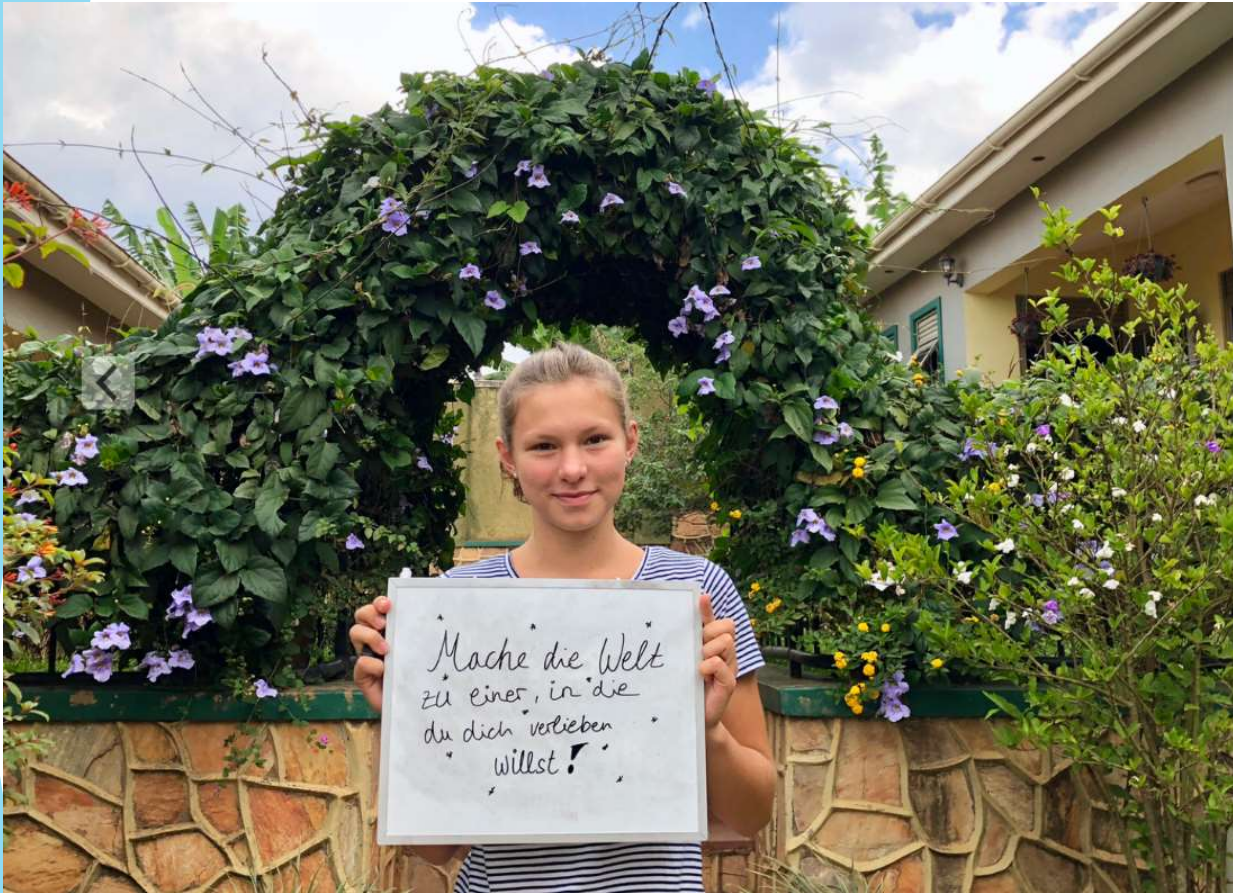 Mache die Welt
zu einer, in die
du dich verlieben
willst!